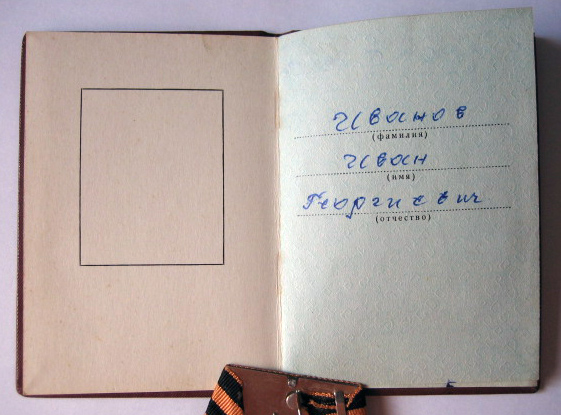 Иванов
(фамилия)
Иван
(имя)
Георгиевич
(отчество)